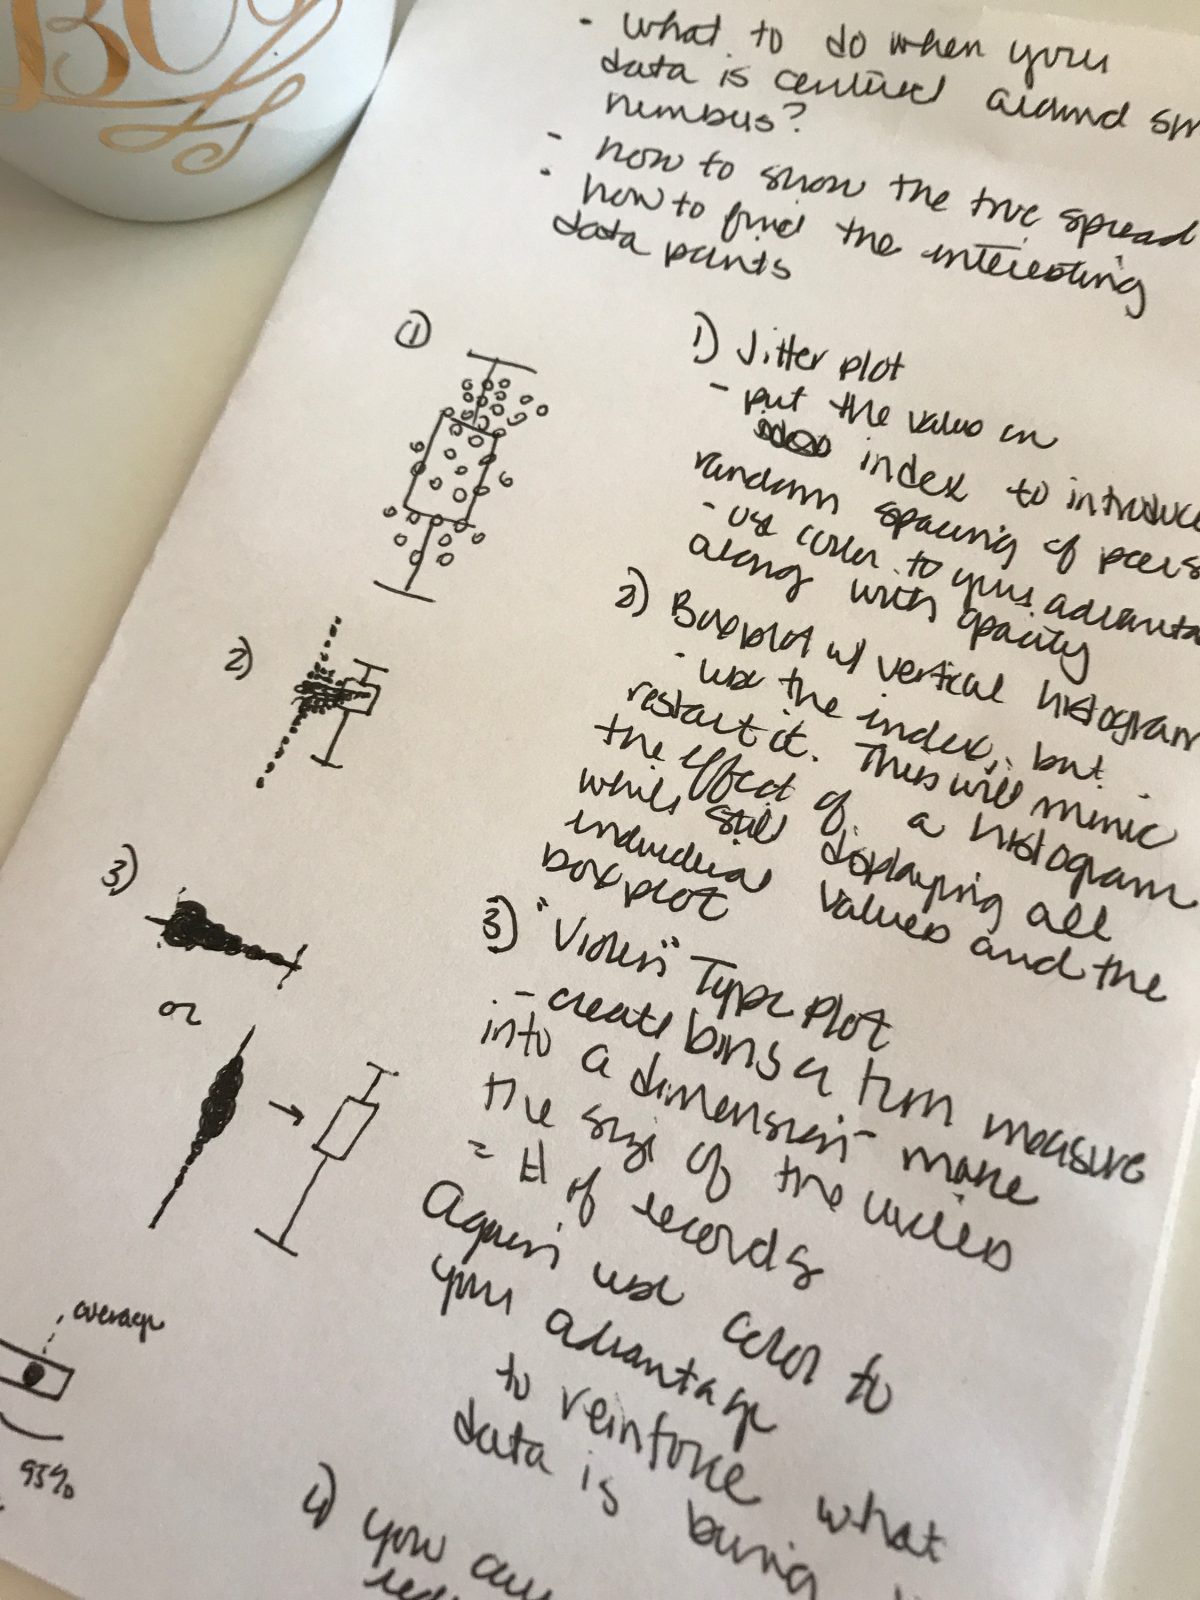 - what to do when your
data is centered around
numbers?
- how to show the true spread
- how to find the interesting
data points
1)
1) Jitter plot
- put the value on
index to introduce
random spacing of
- use color to your
along with opacity
2)
2) Boxplot w/ vertical histogram
- use the index, but
restart it. This will mimic
the effect of a histogram
while still displaying all
individual values and the
boxplot
3)
or
3) "Violin" Type Plot
- create bins & turn measure
into a dimension - make
the size of the circles
= # of records
Again use color to
your advantage
to reinforce what
data is being
average
95%
4) you